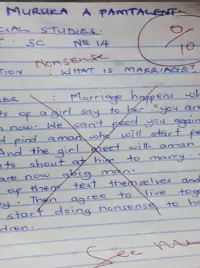 MURUKA A PAMTALENT
CIAL STUDIES.
: 3C NR 14
0/10
Nonsense
TION : WHAT IS MARRIAGE?
: Marriage happens wh
ts of a girl say to her "you are
now. We can't feed you again
find aman who will start fe
And the girl meet with aman
ts shout at him to marry.
are now abig man.
of them test themselves and
y. Then agree to live toge
start doing nonsense to ha
dren.
See Me